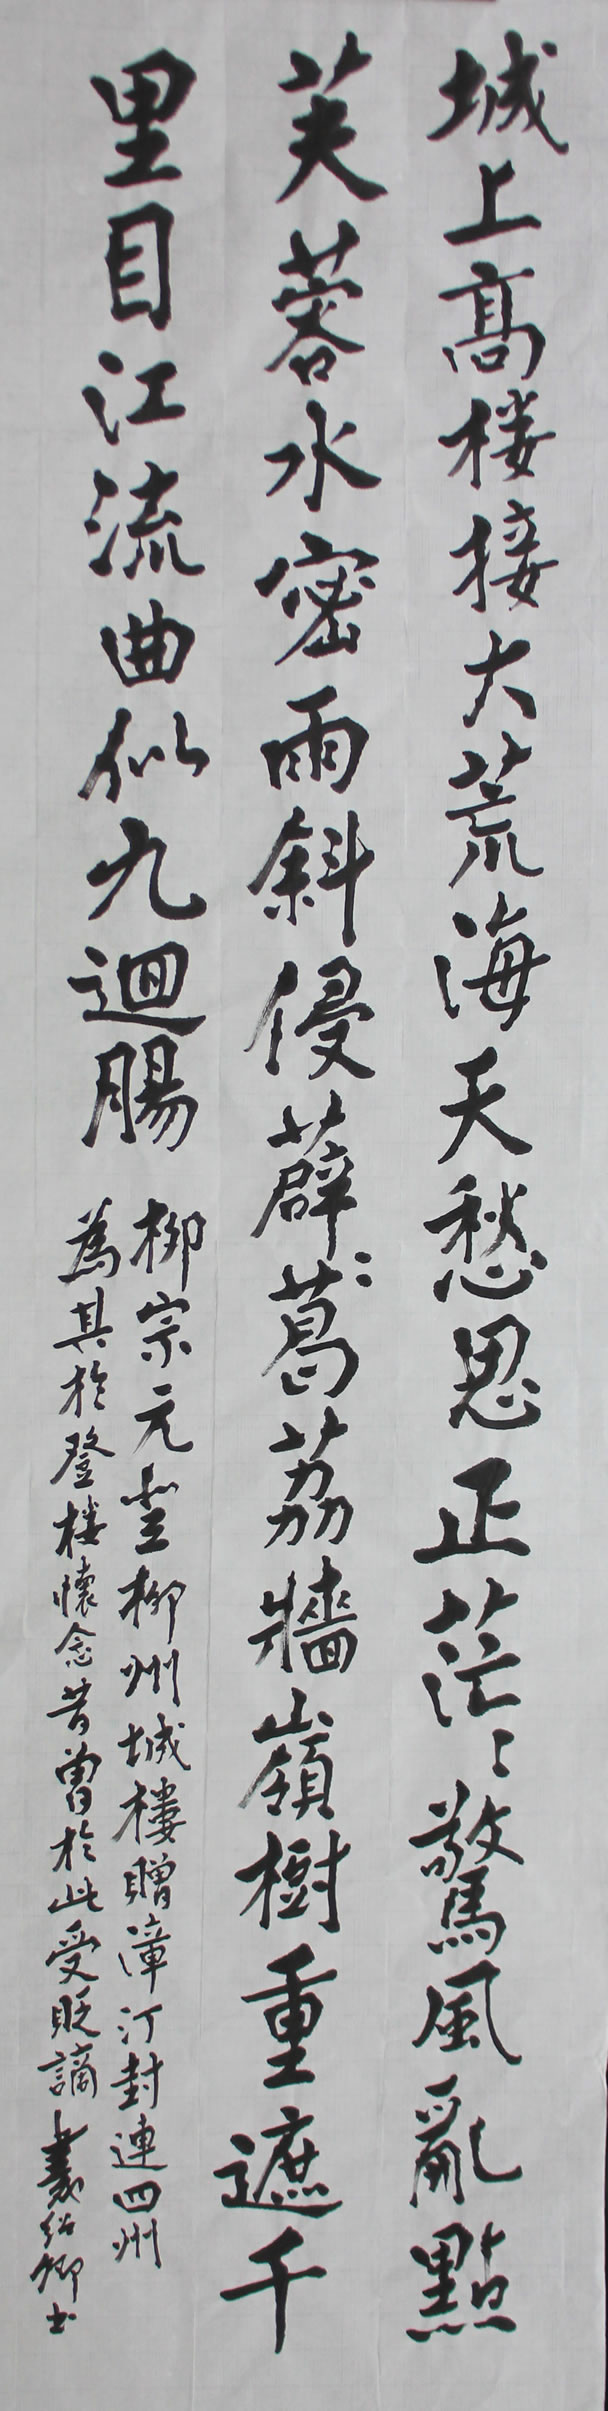 城上高楼接大荒海天愁思正茫〻驚風亂點
芙蓉水密雨斜侵薜〻葛荔牆山嶺樹重遮千
里目江流曲似九迴腸
柳宗元登柳州城樓贈漳汀封連四州
為其於登楼懷念昔曾於此受貶謫
書